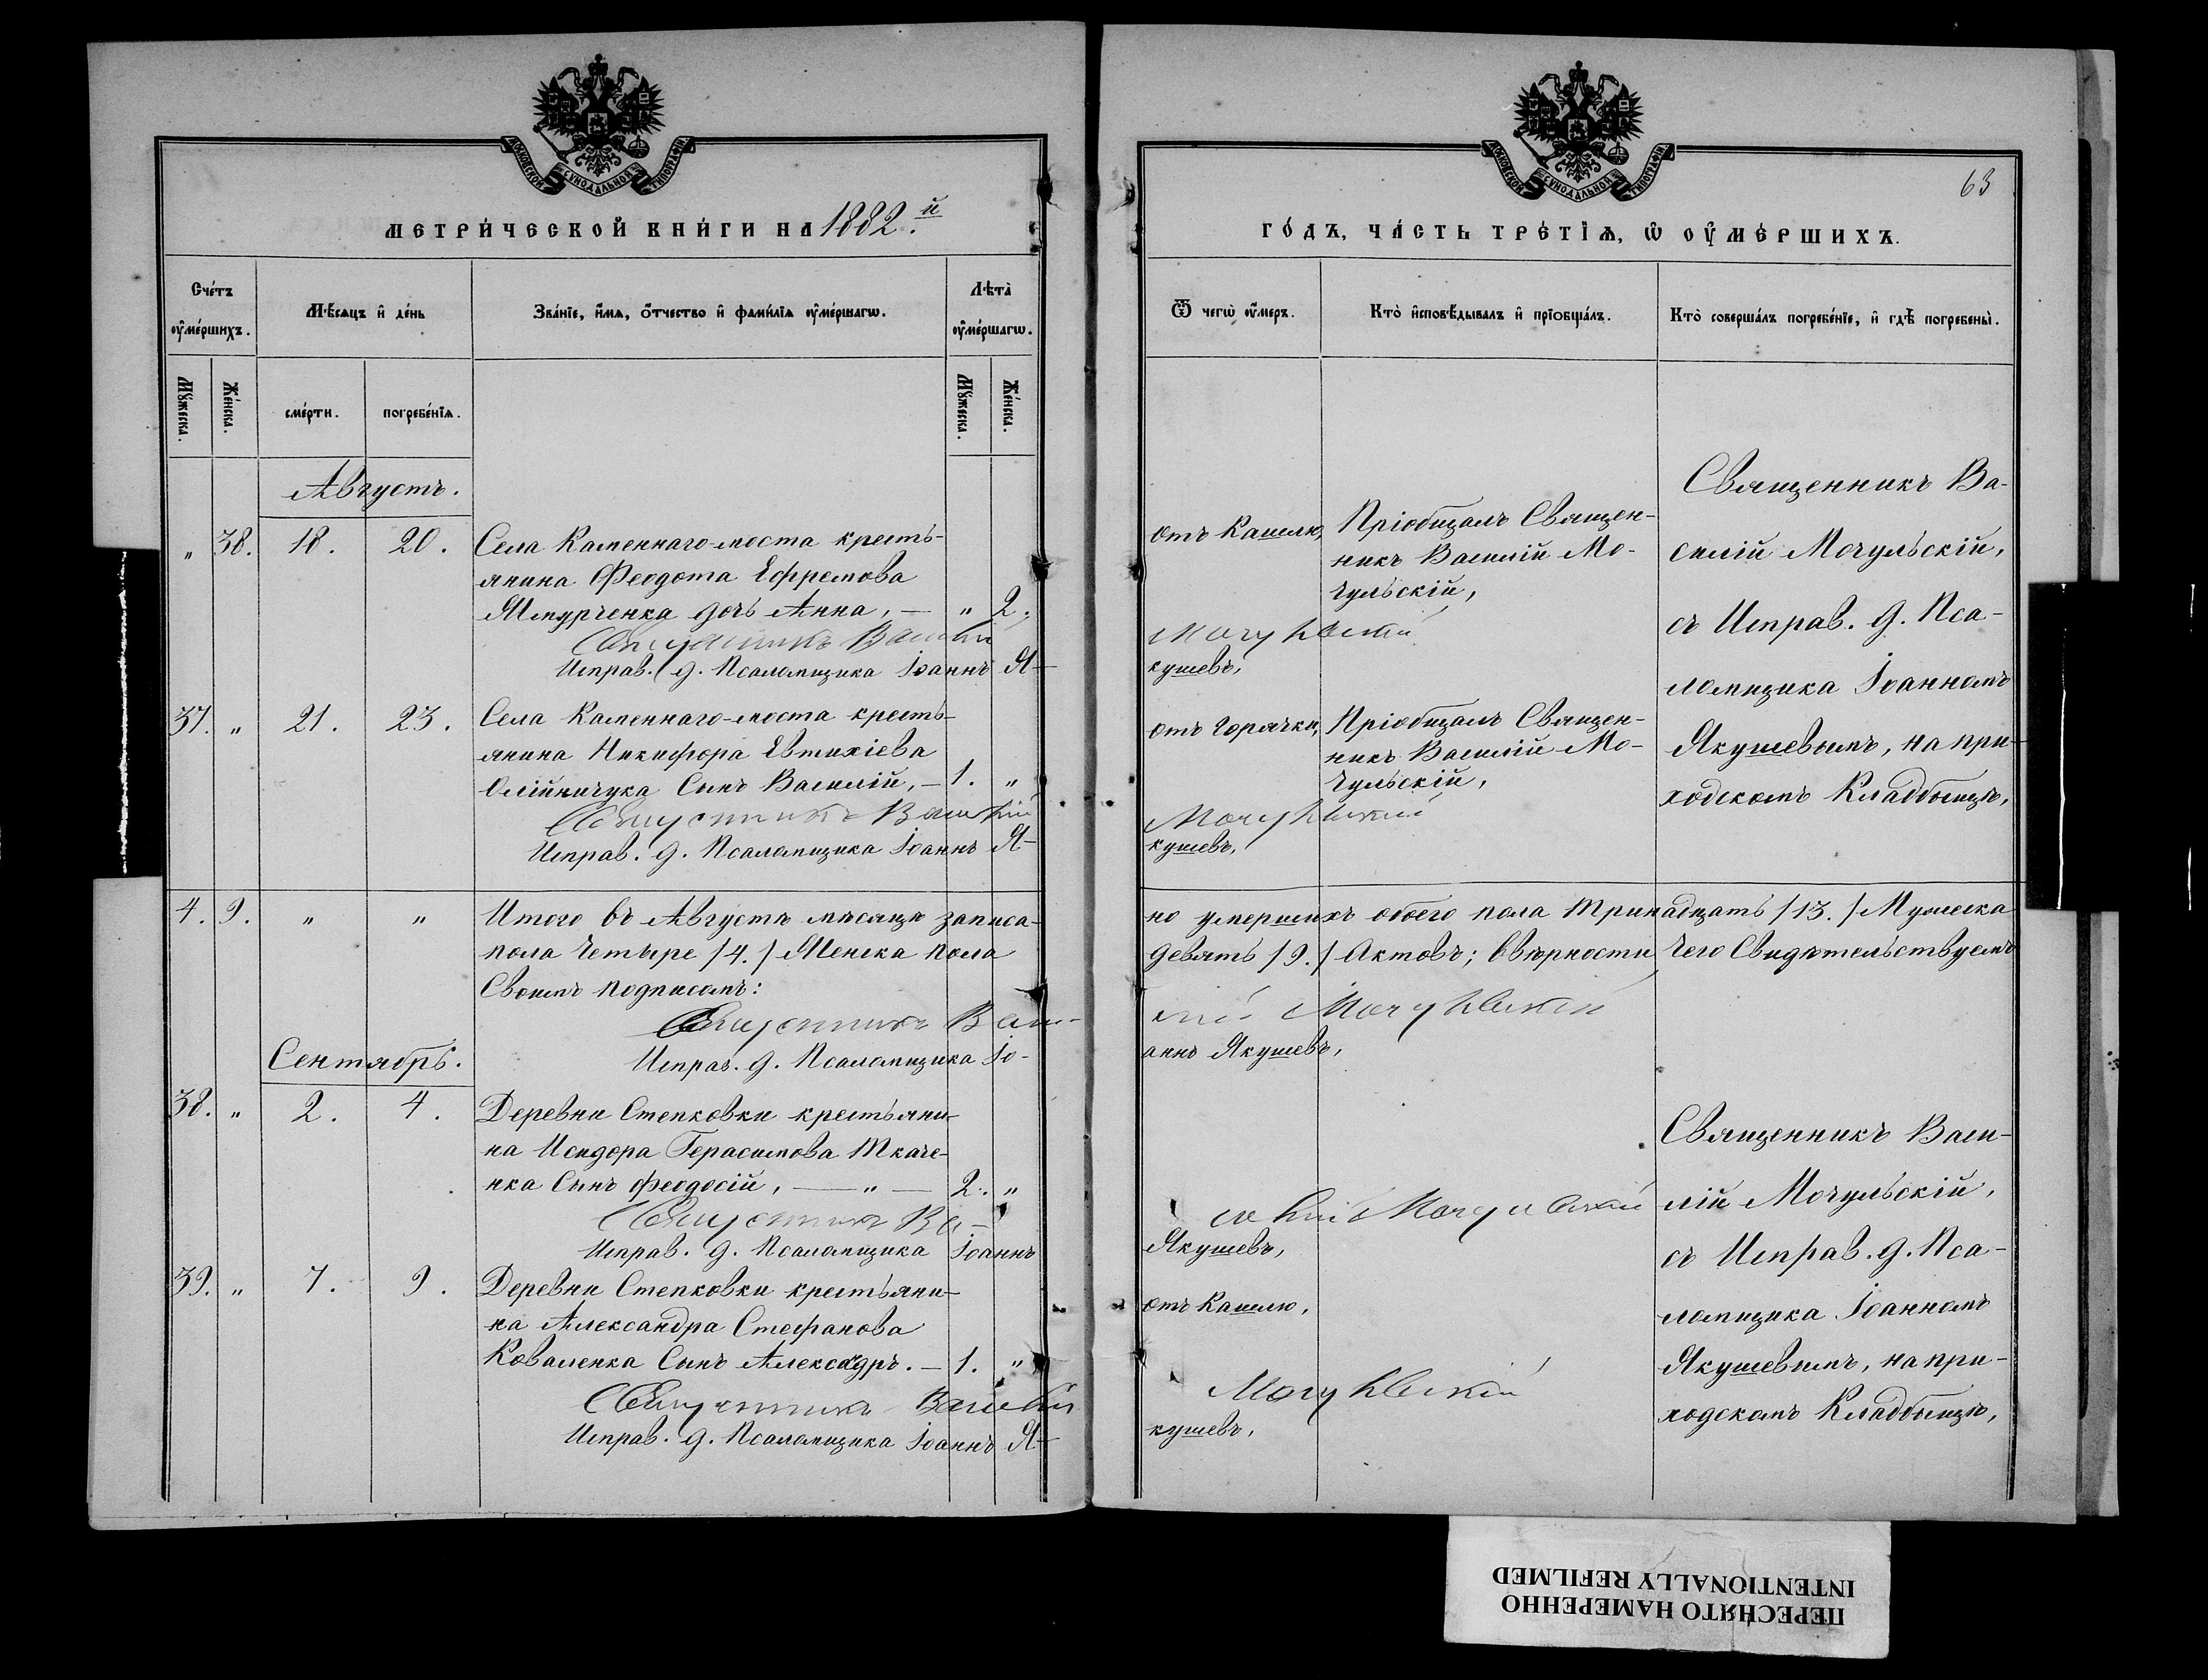 МОСКОВСКОЙ СУНОДАЛЬНОЙ ТИПОГРАФІИ
МЕТРИ́ЧЕСКОЙ КНИ́ГИ НА 1882.й
Сче́тъ оуме́ршихъ.
Мѣ́сяцъ и де́нь
Зва́нїе, и́мѧ, о́тчество и фами́лїѧ оуме́ршагѡ.
Лѣта̀ оуме́ршагѡ.
Мꙋ́жеска.
Же́нска.
сме́рти.
погребе́нїѧ.
Мꙋ́жеска.
Же́нска.
Августъ.
„ 38. 18. 20. Села Каменнаго-моста кресть-
янина Феодота Ефремова
дочь Анна, — „ 2.
Священникъ Василій
Исправ. д. Псаломщика Іоаннъ Я-
37. „ 21. 23. Села Каменнаго-моста кресть-
янина Никифора Евтихіева
Олійничука Сынъ Василій, — 1. „
Священникъ Василій
Исправ. д. Псаломщика Іоаннъ Я-
4. 9. „ „ Итого въ Августѣ мѣсяцѣ записа-
пола Четыре /4./ Женска пола
Своимъ подписомъ:
Священникъ Васи-
Исправ. д. Псаломщика Іо-
Сентябрь.
38. „ 2. 4. Деревни Степковки крестьяни-
на Исидора Герасимова Ткаче-
нка Сынъ Феодосій, — „ — 2. „
Священникъ Ва-
Исправ. д. Псаломщика Іоаннъ
39. „ 7. 9. Деревни Степковки крестьяни-
на Александра Стефанова
Коваленка Сынъ Александръ. — 1. „
Священникъ Василій
Исправ. д. Псаломщика Іоаннъ Я-
МОСКОВСКОЙ СУНОДАЛЬНОЙ ТИПОГРАФІИ
63
ГО́ДЪ, ЧА́СТЬ ТРЕ́ТЇѦ, Ѡ ОУМЕ́РШИХЪ.
Ѿ чегѡ̀ оу́меръ.
Кто̀ исповѣ́дывалъ и прїобща́лъ.
Кто̀ соверша́лъ погребе́нїе, и гдѣ̀ погребены̀.
отъ Кашлю,
Пріобщалъ Священ-
никъ Василій Мо-
чульскій,
Мочульскій
кушевъ,
Священникъ Ва-
силій Мочульскій,
съ Исправ. д. Пса-
ломщика Іоанномъ
Якушевымъ, на при-
ходскомъ Кладбищѣ,
отъ Горячки,
Пріобщалъ Священ-
никъ Василій Мо-
чульскій,
Мочульскій
кушевъ,
но умершихъ обоего пола Тринадцать /13./ Мужеска
девять /9./ Актовъ; Ввѣрности чего Свидѣтельствуемъ
лій Мочульскій
аннъ Якушевъ,
силій Мочульскій
Якушевъ,
отъ Кашлю,
Мочульскій
кушевъ,
Священникъ Васи-
лій Мочульскій,
съ Исправ. д. Пса-
ломщика Іоанномъ
Якушевымъ, на при-
ходскомъ Кладбищѣ,
ПЕРЕСНЯТО НАМЕРЕННО
INTENTIONALLY REFILMED